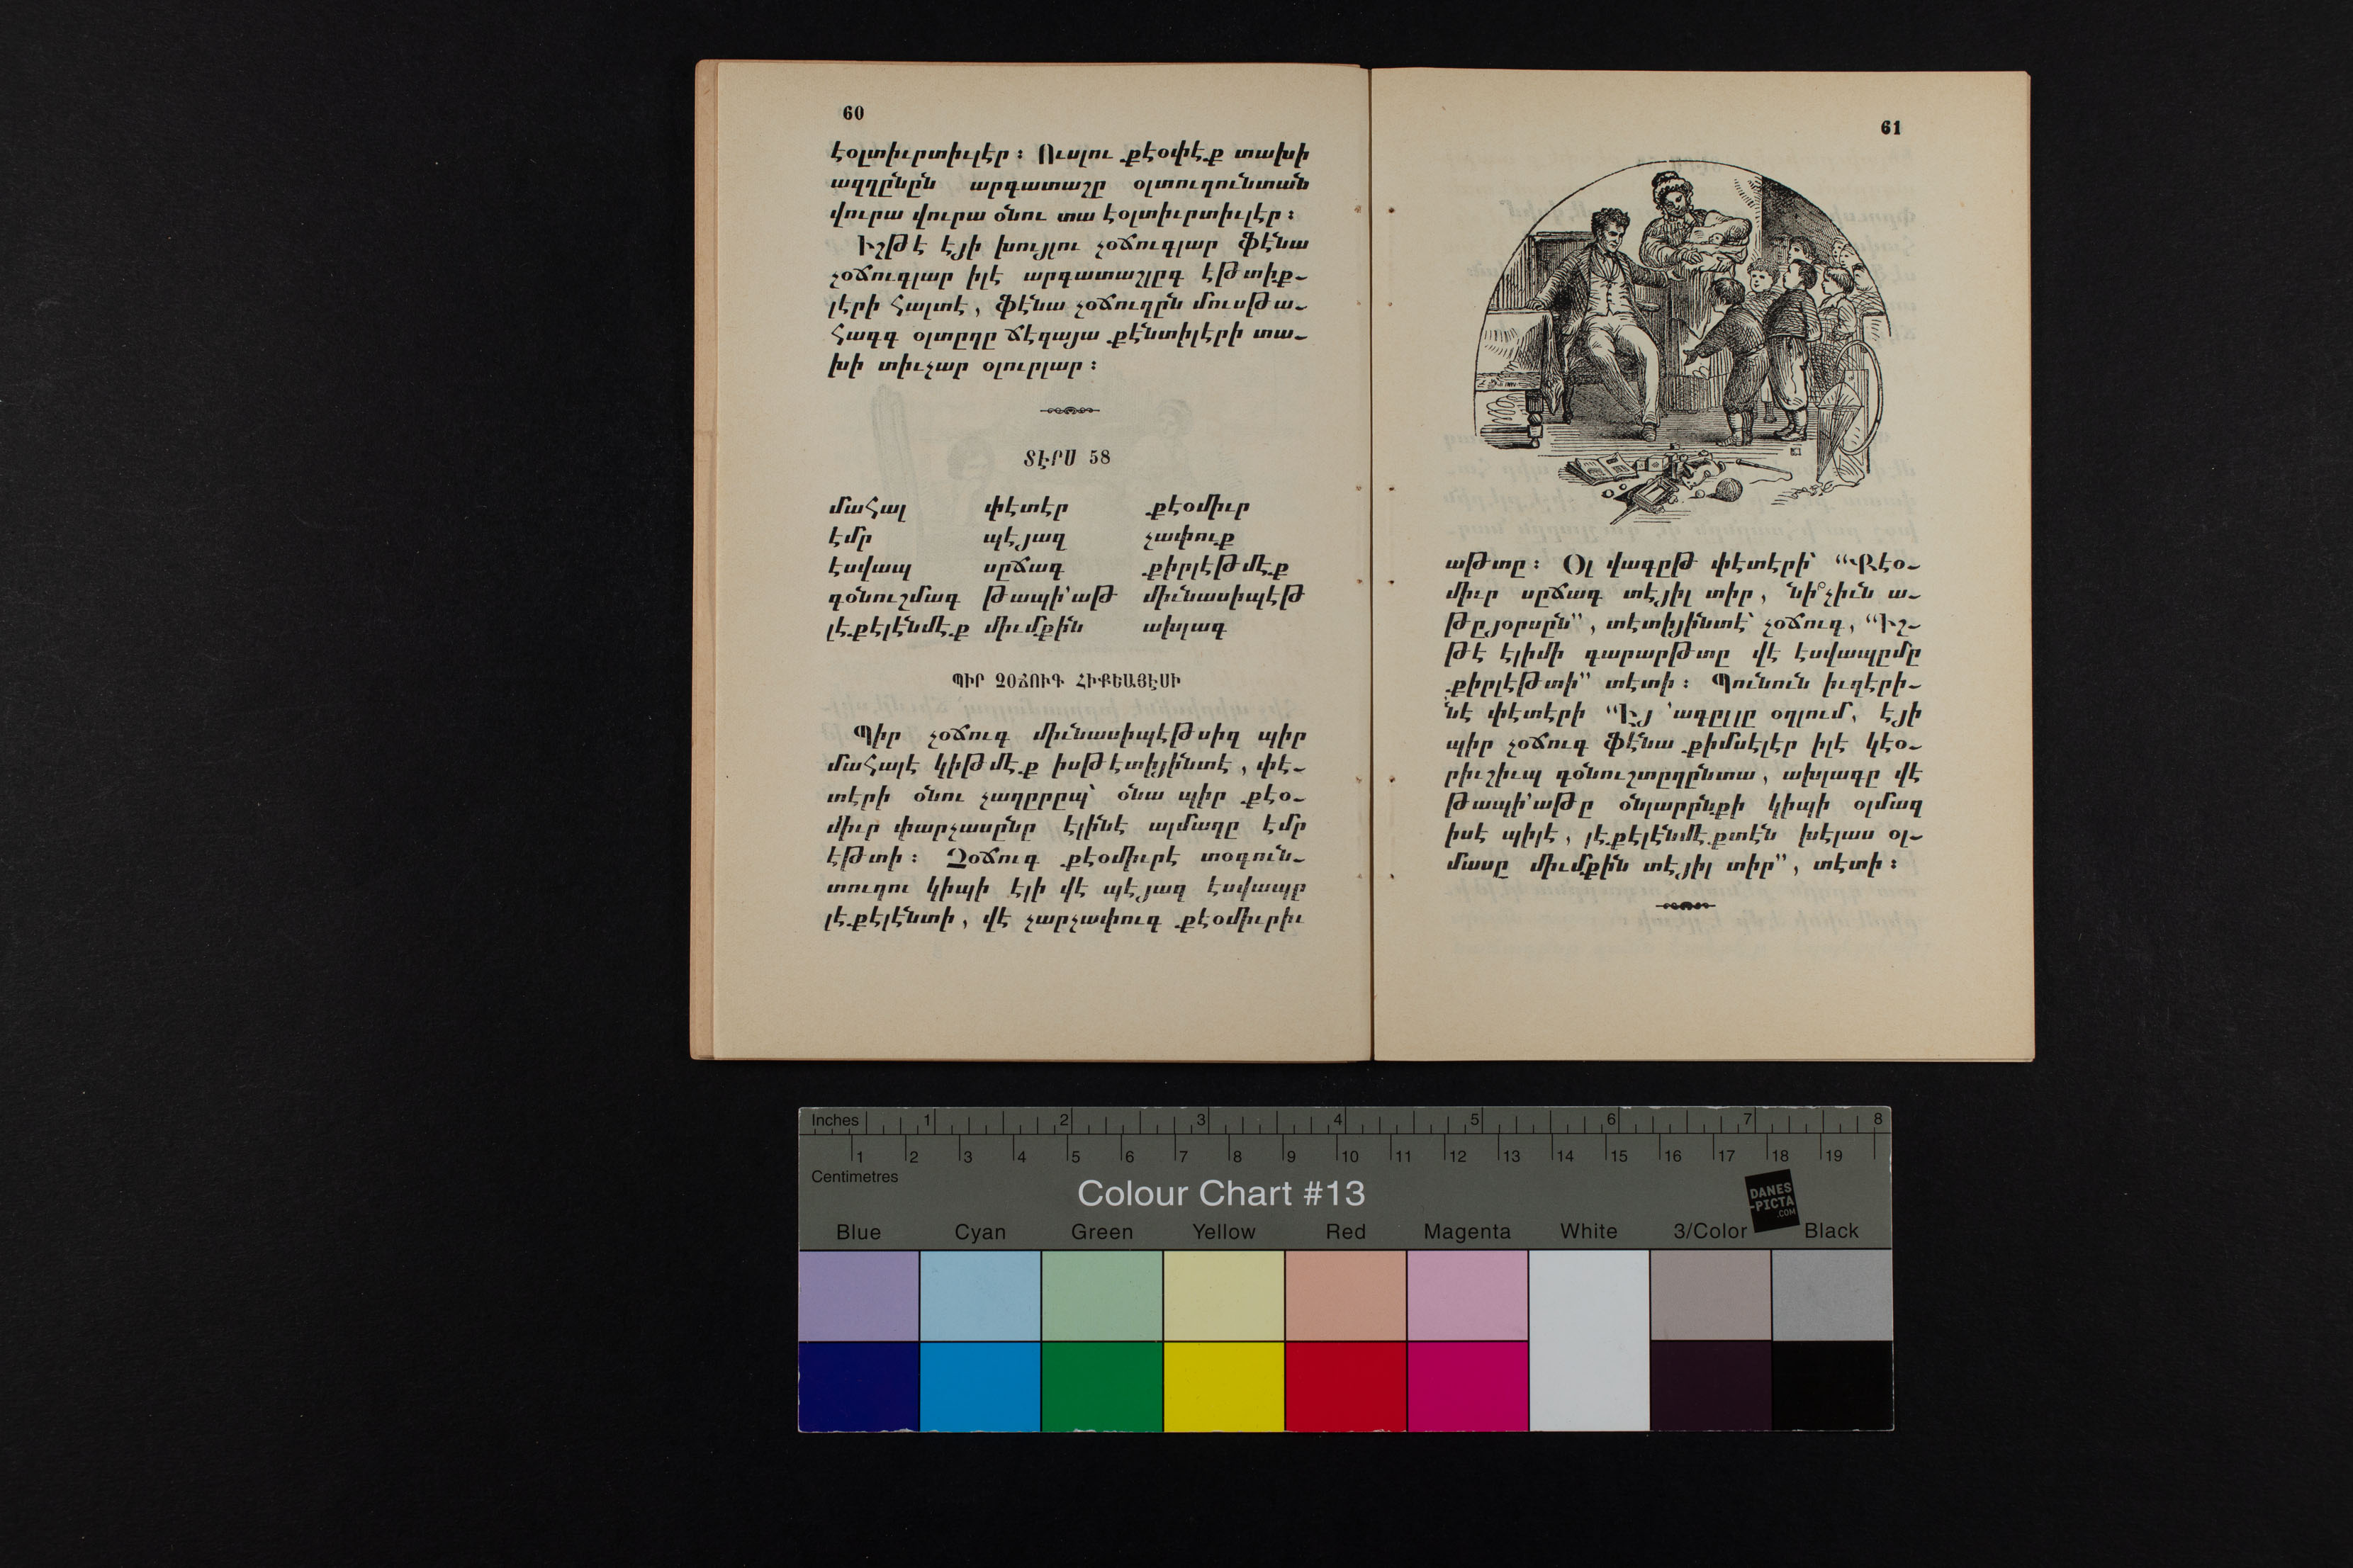 60
էօլտիւրտիւլէր։ Ուսլու քէօփէք տախի
ազղընըն արգատաշը օլտուղունտան
վուրա վուրա օնու տա էօլտիւրտիւլէր։
Իշթէ էյի խույլու չօճուգլար ֆէնա
չօճուգլար իլէ արգատաշլըգ էթտիք֊
լէրի հալտէ, ֆէնա չօճուղըն մուսթա֊
հագգ օլտըղը ճէզայա քէնտիլէրի տա֊
խի տիւչար օլուրլար։
ՏԷՐՍ 58
մահալ փէտէր քէօմիւր
էմր պէյազ չափուք
էսվապ սըճագ քիրլէթմէք
գօնուշմագ թապի՛աթ միւնասիպէթ
լէքէլէնմէք միւմքին ախլագ
ՊԻՐ ՉՕՃՈՒԳ ՀԻՔԵԱՅԷՍԻ
Պիր չօճուգ միւնասիպէթսիզ պիր
մահալէ կիթմէք իսթէտիյինտէ, փէ֊
տէրի օնու չաղըրըպ՝ օնա պիր քէօ֊
միւր փարչասընը էլինէ ալմաղը էմր
էթտի։ Չօճուգ քէօմիւրէ տօգուն֊
տուղու կիպի էլի վէ պէյազ էսվապը
լէքէլէնտի, վէ չարչափուգ քէօմիւրիւ
61
աթտը։ Օլ վագըթ փէտէրի՝ “Քէօ֊
միւր սըճագ տէյիլ տիր, նի՞չիւն ա֊
թըյօրսըն”, տէտիյինտէ՝ չօճուգ, “Իշ֊
թէ էլիմի գարարթտը վէ էսվապըմը
քիրլէթտի” տէտի։ Պունուն իւզէրի֊
նէ փէտէրի “Էյ ՛ագըլլը օղլում, էյի
պիր չօճուգ ֆէնա քիմսէլէր իլէ կէօ֊
րիւշիւպ գօնուշտըղընտա, ախլագը վէ
թապի՛աթը օնլարընքի կիպի օլմազ
իսէ պիլէ, լէքէլէնմէքտէն խէլաս օլ֊
մասը միւմքին տէյիլ տիր”, տէտի։
Inches 1 2 3 4 5 6 7 8
1 2 3 4 5 6 7 8 9 10 11 12 13 14 15 16 17 18 19
Centimetres
Colour Chart #13
DANES
-PICTA
.COM
Blue Cyan Green Yellow Red Magenta White 3/Color Black